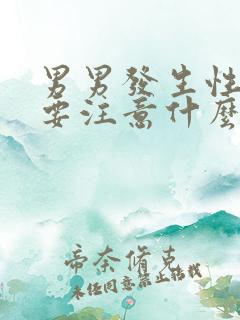 男男發生性
要注意什麼
帝奈脩克
未经同意禁止转载